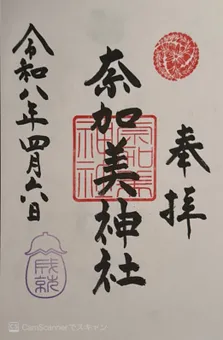 奉拝
奈加美神社
令和八年四月六日
成就
CamScannerでスキャン